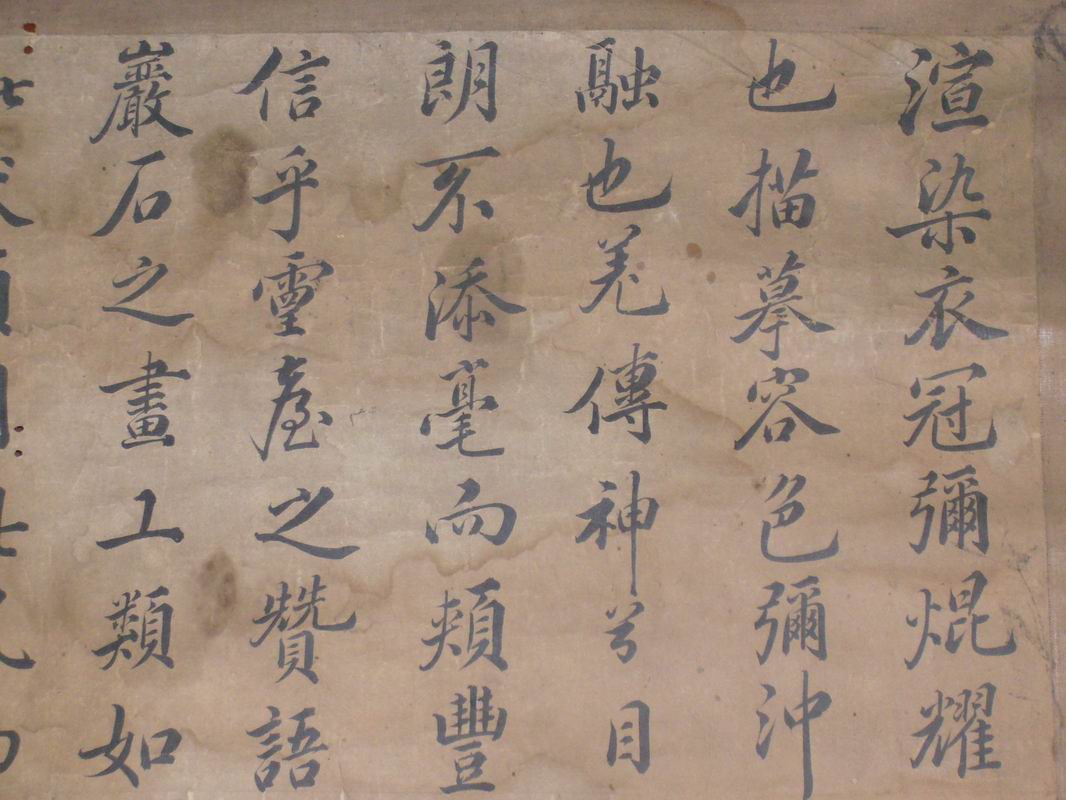 渲染衣冠彌焜耀
也描摹容色彌沖
融也羌傳神兮目
朗不添毫而頰豐
信乎靈臺之贊語
巖石之畫工類如